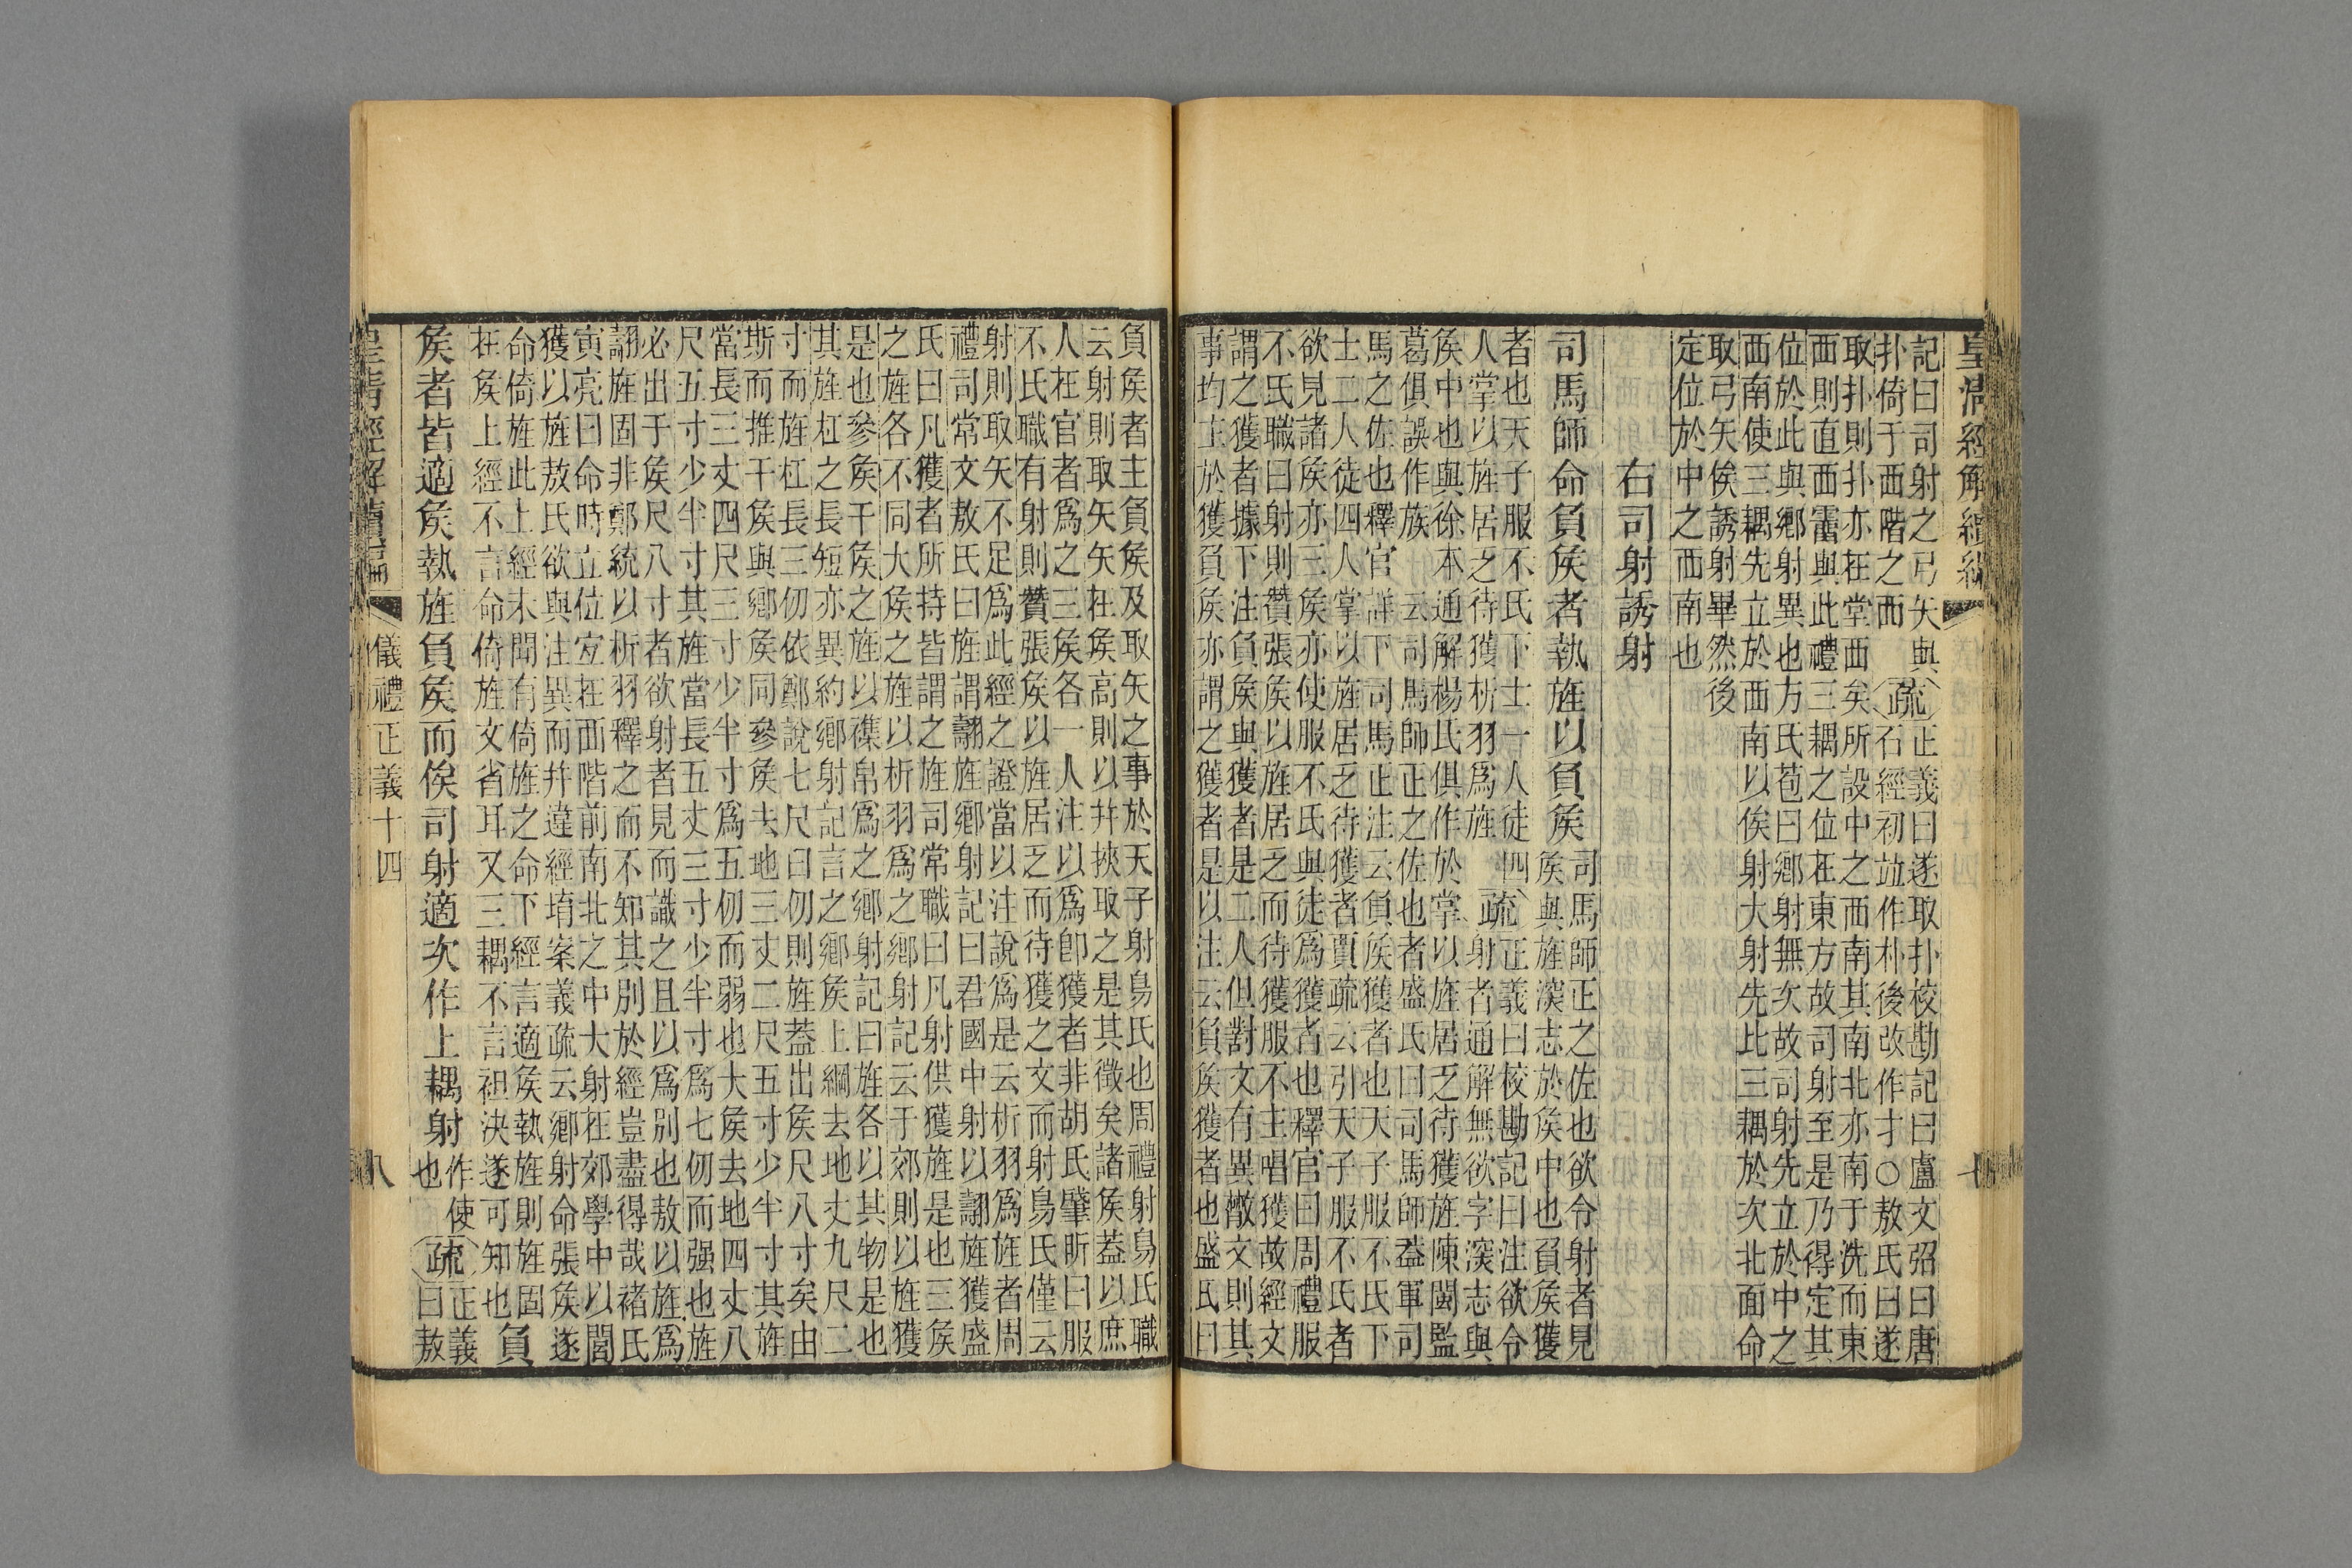 皇清經解續編
七
記曰司射之弓矢與
扑倚于西階之西
疏
正義曰遂取扑校勘記曰盧文弨曰唐
石經初竝作朴後改作才○敖氏曰遂
取扑則扑亦在堂西矣所設中之西南其南北亦南于洗而東
西則直西霤與此禮三耦之位在東方故司射至是乃得定其
位於此與鄉射異也方氏苞曰鄉射無次故司射先立於中之
西南使三耦先立於西南以俟射大射先比三耦於次北面命
取弓矢俟誘射畢然後
定位於中之西南也
右司射誘射
司馬師命負侯者執旌以負侯
司馬師正之佐也欲令射者見
侯與旌㴱志於侯中也負侯獲
者也天子服不氏下士一人徒四
人掌以旌居乏待獲析羽爲旌
疏
正義曰校勘記曰注欲令
射者通解無欲字㴱志與
侯中也與徐本通解楊氏俱作於掌以旌居乏待獲旌陳閩監
葛俱誤作族 云司馬師正之佐也者盛氏曰司馬師葢軍司
馬之佐也釋官詳下司馬正注云負侯獲者也天子服不氏下
士二人徒四人掌以旌居乏待獲者賈疏云引天子服不氏者
欲見諸侯亦三侯亦使服不氏與徒爲獲者也釋官曰周禮服
不氏職曰射則贊張侯以旌居乏而待獲服不主唱獲故經文
謂之獲者據下注負侯與獲者是二人但對文有異散文則其
事均主於獲負侯亦謂之獲者是以注云負侯獲者也盛氏曰
負侯者主負侯及取矢之事於天子射鳥氏也周禮射鳥氏職
云射則取矢矢在侯高則以并挾取之是其徵矣諸侯葢以庶
人在官者爲之三侯各一人注以爲卽獲者非胡氏肇昕曰服
不氏職有射則贊張侯以旌居乏而待獲之文而射鳥氏僅云
射則取矢不足爲此經之證當以注說爲是云析羽爲旌者周
禮司常文敖氏曰旌謂翿旌鄉射記曰君國中射以翿旌獲盛
氏曰凡獲者所持皆謂之旌司常職曰凡射供獲旌是也三侯
之旌各不同大侯之旌以析羽爲之鄉射記云于郊則以旌獲
是也參侯干侯之旌以襍帛爲之鄉射記曰旌各以其物是也
其旌杠之長短亦異約鄉射記言之鄉侯上綱去地丈九尺二
寸而旌杠長三仞依鄭說七尺曰仞則旌葢出侯尺八寸矣由
斯而推干侯與鄉侯同參侯去地三丈二尺五寸少半寸其旌
當長三丈四尺三寸少半寸爲五仞而弱也大侯去地四丈八
尺五寸少半寸其旌當長五丈三寸少半寸爲七仞而强也旌
必出于侯尺八寸者欲射者見而識之且以爲別也敖以旌爲
翿旌固非鄭統以析羽釋之而不知其別於經豈盡得哉褚氏
寅亮曰命時立位㝎在西階前南北之中大射在郊學中以閭
獲以旌敖氏欲與注異而幷違經堉案義疏云鄉射命張侯遂
命倚旌此上經未聞有倚旌之命下經言適侯執旌則旌固
在侯上經不言命倚旌文省耳又三耦不言袒決遂可知也
負
侯者皆適侯執旌負侯而俟司射適次作上耦射
作使
也
疏
正義
曰敖
皇清經解續編
儀禮正義十四
八